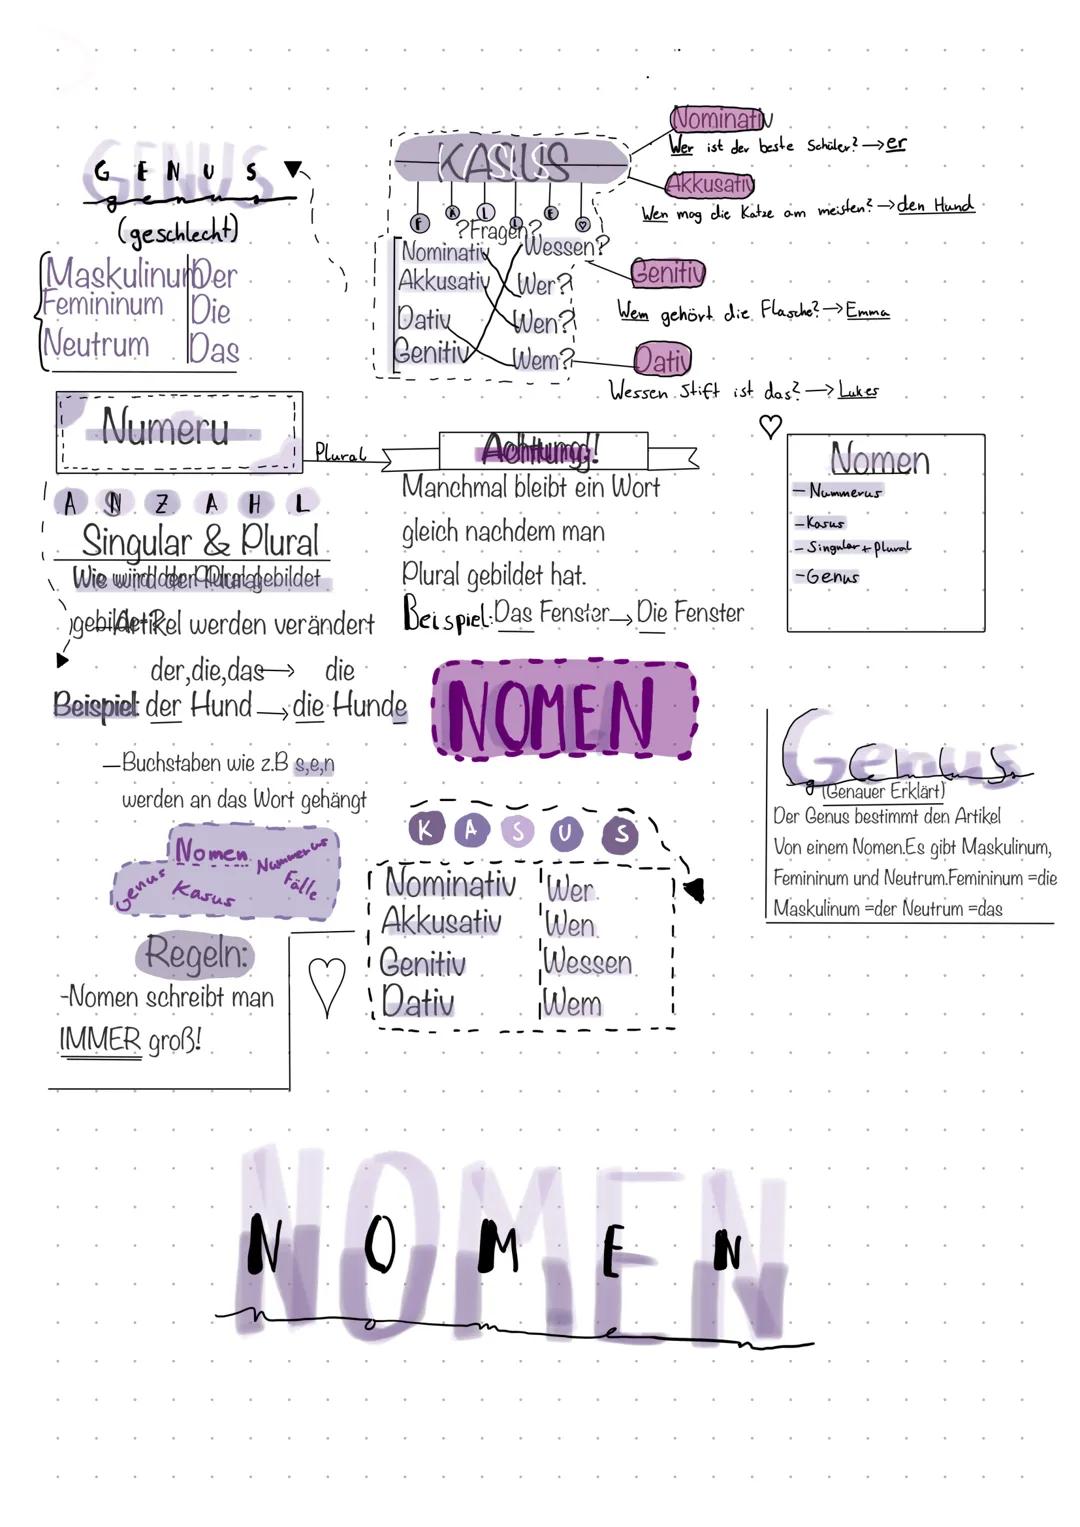 GENUS
G E N U S
genus
(geschlecht)
Maskulinum Der
Femininum Die
Neutrum Das
KASUS
F Ä L L E
?Fragen?
Nominativ Wessen?
Akkusativ Wer?
Dativ Wen?
Genitiv Wem?
Nominativ
Wer ist der beste Schüler? → er
Akkusativ
Wen mag die Katze am meisten? → den Hund
Genitiv
Wem gehört die Flasche? → Emma
Dativ
Wessen Stift ist das? → Lukes
Numeru
A N Z A H L
Singular & Plural
Wie wird der Plural gebildet
gebildet?
Artikel werden verändert
der,die,das → die
Beispiel: der Hund → die Hunde
—Buchstaben wie z.B s,e,n
werden an das Wort gehängt
Plural
Achtung!
Manchmal bleibt ein Wort
gleich nachdem man
Plural gebildet hat.
Beispiel: Das Fenster → Die Fenster
Nomen
- Nummerus
- Kasus
- Singular + Plural
- Genus
NOMEN
Genus
(Genauer Erklärt)
Der Genus bestimmt den Artikel
Von einem Nomen.Es gibt Maskulinum,
Femininum und Neutrum.Femininum =die
Maskulinum =der Neutrum =das
Nomen
Nummerus
Genus
Kasus
Fälle
K A S U S
Nominativ Wer
Akkusativ Wen
Genitiv Wessen
Dativ Wem
Regeln:
-Nomen schreibt man
IMMER groß!
NOMEN
N O M E N
nomen